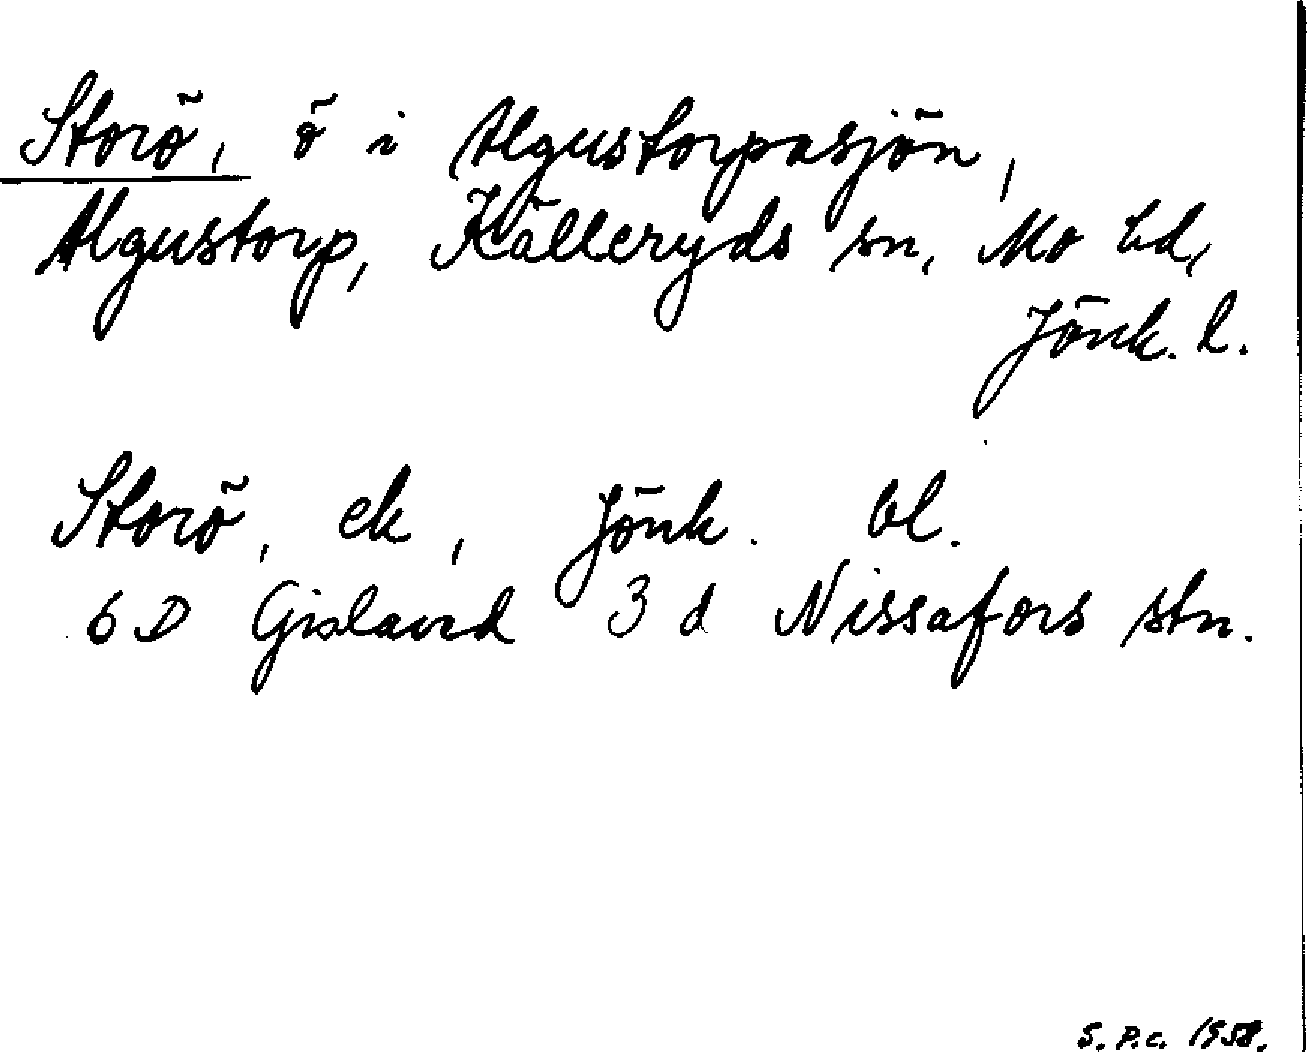 Storö, ö i Algustorpasjön,
Algustorp, Källeryds sn, Mo hd,
Jönk. l.
Storö, ek, Jönk. bl.
6 D Gislaved 3 d Nissafors stn.
S. P. C. 1958.